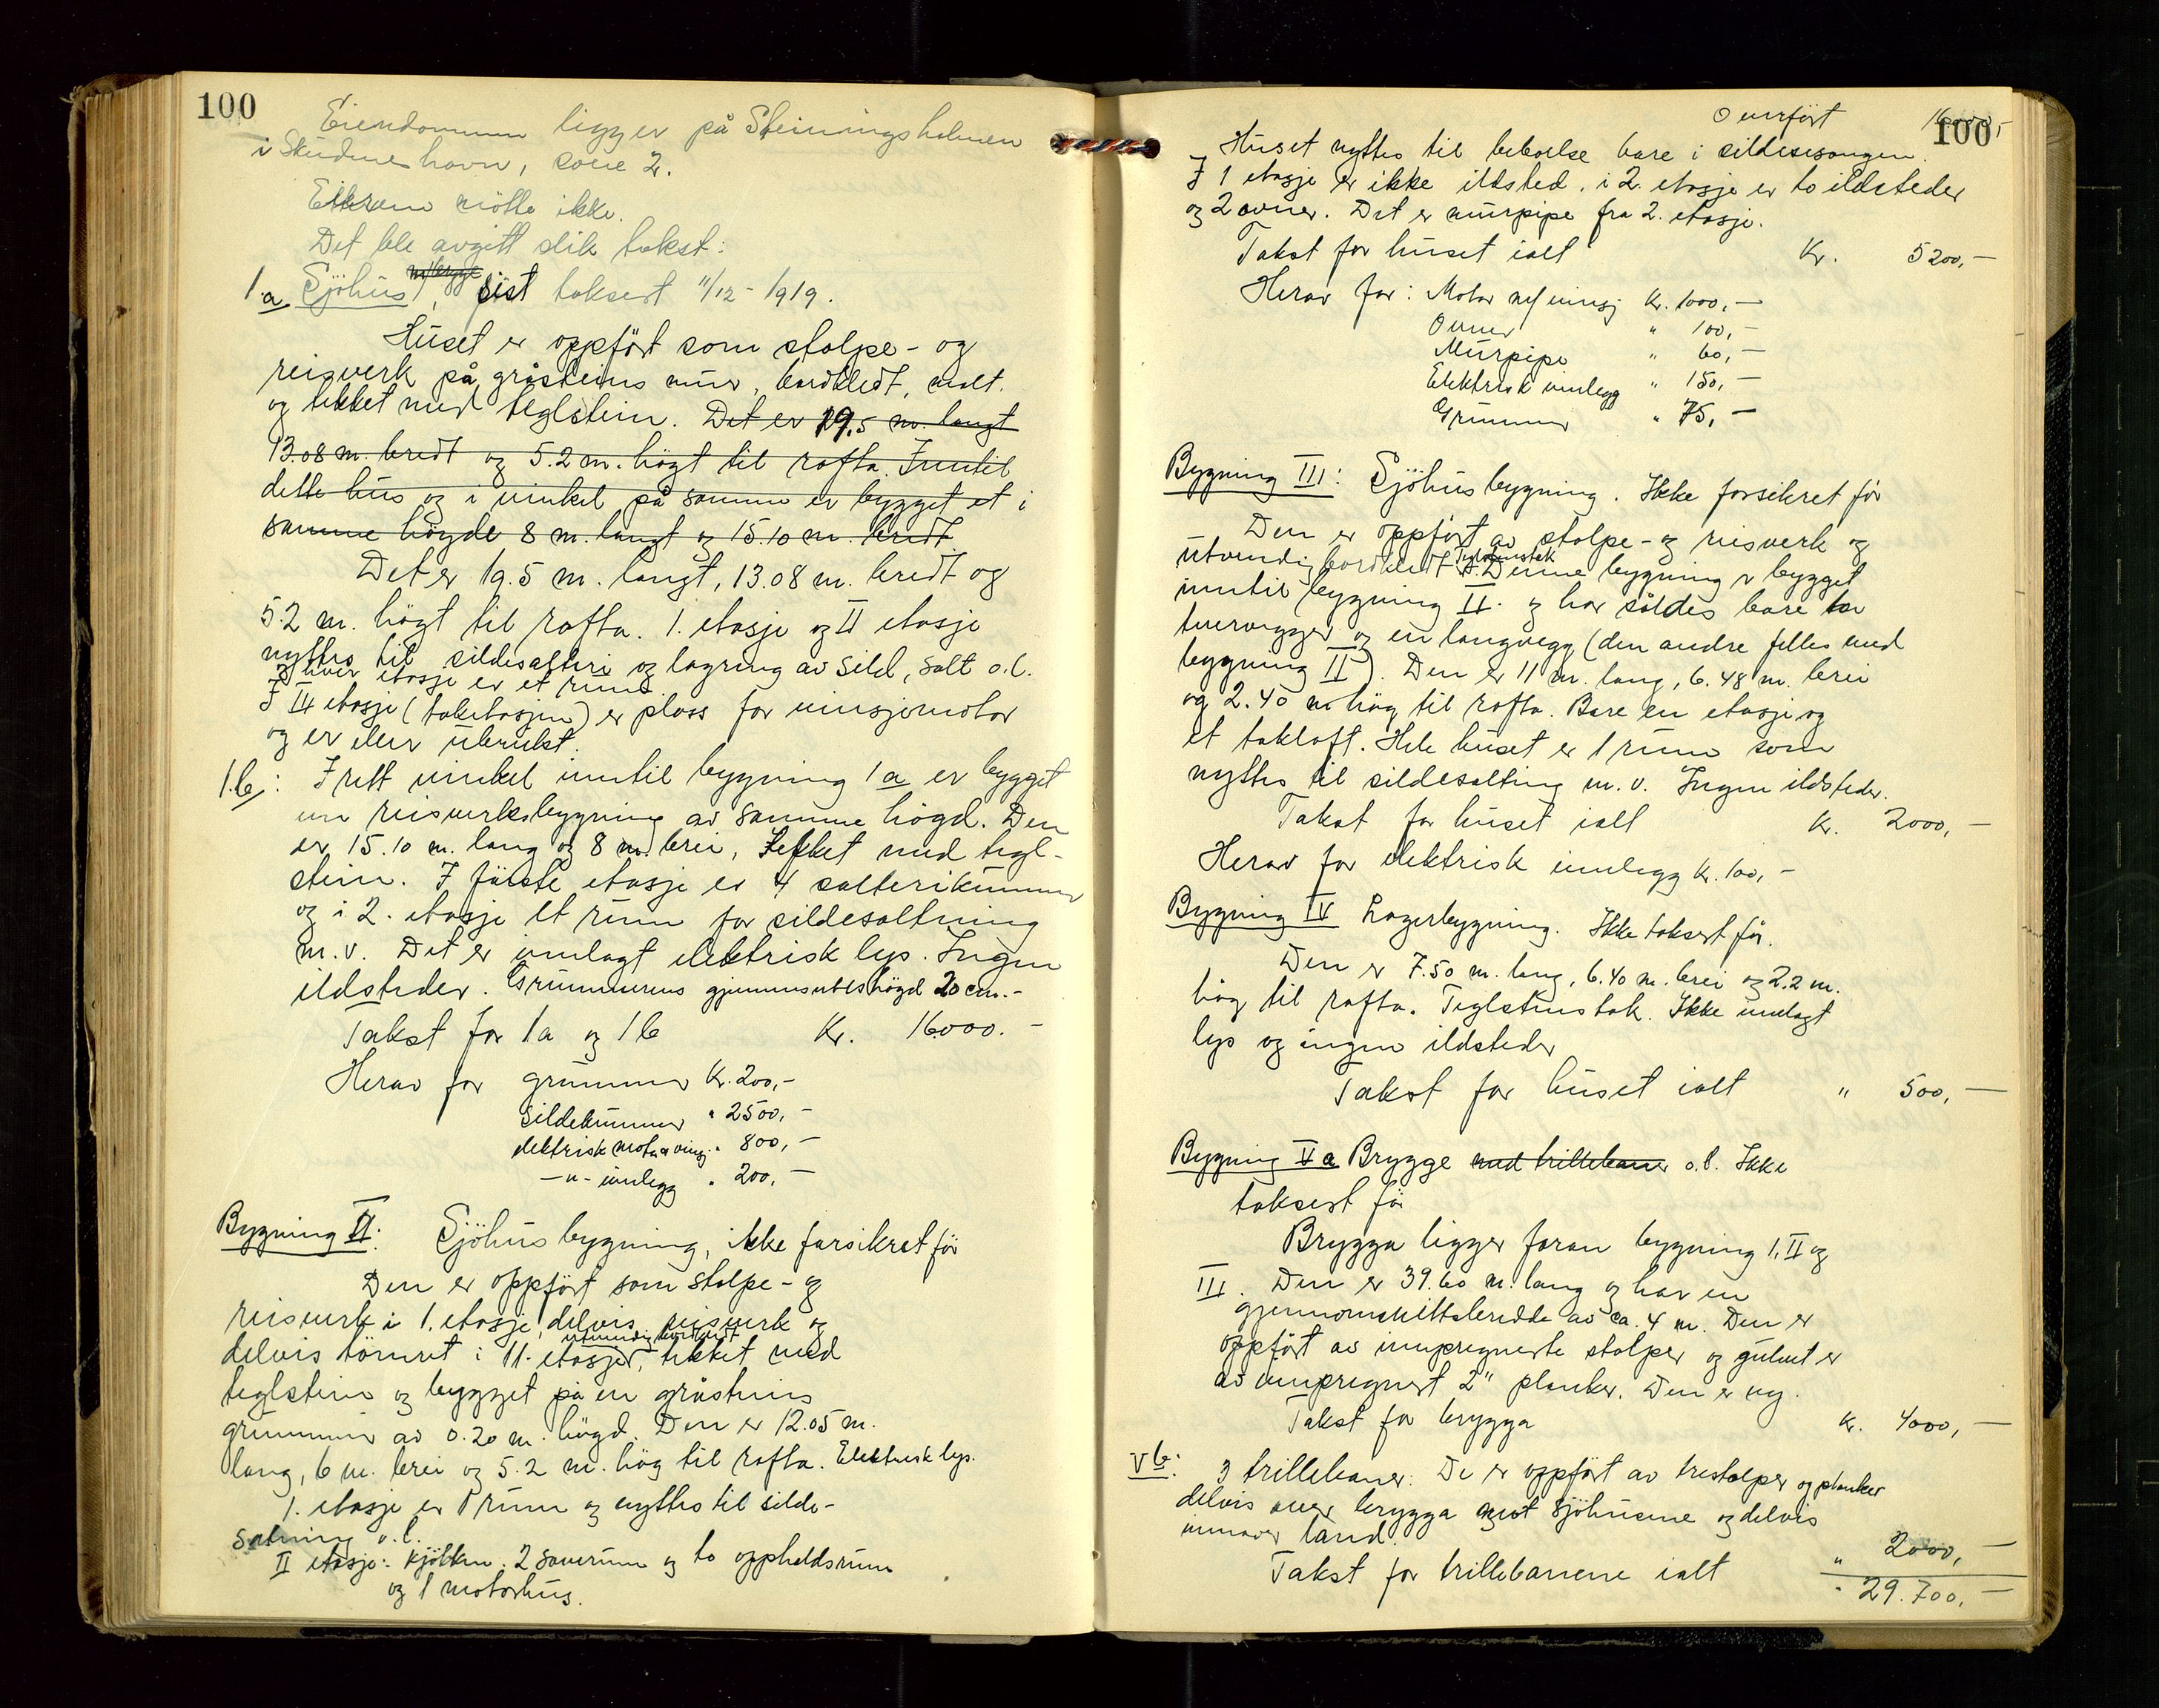 100
Eiendommen ligger på Steiningsholmen
i Skudeneshavn, sone 2.
Eieren møtte ikke.
Det ble avgitt slik takst:
1.a Sjöhus m/brygge, sist taksert 11/12-1919.
Huset er oppfört som stolpe- og
reisverk på gråsteins mur, bordkledt, malt.
og tekket med teglstein. Det er 19.5 m. langt
13.08 m. bredt og 5.2 m. högt til rafta. Inntil
dette hus og i vinkel på samme er bygget et i
samme höyde 8 m. langt og 15.10 m. bredt
Det er 19.5 m. langt, 13.08 m. bredt og
5.2 m. högt til rafta. 1. etasje og II etasje
nyttes til sildesalteri og lagring av sild, salt o.l.
I hver etasje er et rum.
I III etasje (taketasjen) er plass for vinsjemotor
og er eller ubrukt.
1.b: I rett vinkel inntil bygning 1a er bygget
en reisverksbygning av samme högd. Den
er 15.10 m. lang og 8 m. brei, tekket med tegl-
stein. I förste etasje er 4 salterikummer
og i 2. etasje et rum for sildesaltning
m.v. Det er innlagt elektrisk lys. Ingen
ildsteder. Grunnmurens gjennomsnittshögd 20 cm.-
Takst for 1a og 1b Kr. 16000.-
Herav for grunnmur Kr. 200,-
Sildekummer " 2500,-
elektrisk motor og vinsj. " 800,-
-"- innlegg " 200,-
Bygning II: Sjöhusbygning, ikke forsikret för
Den er oppfört som stolpe- og
reisverk i 1. etasje, delvis reisverk og
delvis tömret i 11. etasje, utvendig bordkledt, tekket med
teglstein og bygget på en gråsteins
grunnmur av 0.20 m. högd. Den er 12.05 m.
lang, 6 m. brei og 5.2 m. hög til rafta. Elektrisk lys.
1. etasje er 1 rum og nyttes til silde-
saltning o.l.
II etasje: kjökken, 2 soverum og to oppholdsrum
og 1 motorhus.
100
Overfört 16000,-
Huset nyttes til beboelse bare i sildesesongen.
I 1 etasje er ikke ildsted, i 2. etasje er to ildsteder
og 2 ovner. Det er murpipe fra 2. etasje.
Takst for huset ialt Kr. 5200,-
Herav for: Motor m/vinsj Kr. 1000,-
Ovner " 100,-
Murpipe " 60,-
Elektrisk innlegg " 150,-
Grunnmur " 75,-
Bygning III: Sjöhusbygning. Ikke forsikret för
Den er oppfört av stolpe- og reisverk og
utvendig bordkledt. Teglsteinstak. Denne bygning er bygget
inntil bygning II og har således bare to
tverrvegger og en langvegg (den andre felles med
bygning II). Den er 11 m. lang, 6.48 m. brei
og 2.40 m hög til rafta. Bare en etasje og
et takloft. Hele huset er 1 rum som
nyttes til sildesalting m.v. Ingen ildsteder.
Takst for huset ialt Kr. 2000,-
Herav for elektrisk innlegg Kr. 100,-
Bygning IV Lagerbygning. Ikke taksert för.
Den er 7.50 m. lang, 6.40 m. brei og 2.2 m.
hög til rafta. Teglsteinstak. Ikke innlagt
lys og ingen ildsteder
Takst for huset ialt " 500,-
Bygning V a Brygge med trillebaner o.l. Ikke
taksert för
Brygga ligger foran bygning 1, II og
III. Den er 39.60 m. lang og har en
gjennomsnittsbredde av ca. 4 m. Den er
oppfört av impregnerte stolper og gulvet er
av impregnert 2" planker. Den er ny.
Takst for brygga Kr. 4000,-
V b: 3 trillebaner. De er oppfört av trestolper og planker
delvis over brygga mot sjöhusene og delvis
innover land.
Takst for trillebanene ialt " 2000,-
" 29.700,-